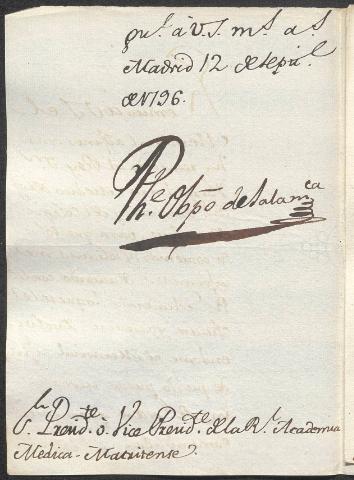 gue. à V.S. ms. as.
Madrid 12 de sepre.
de 1796.
Phe. Obpo de Salamca
Sr. Presidte. ò Vice Presidte. de la Rl. Academia
Medica-Matritense.